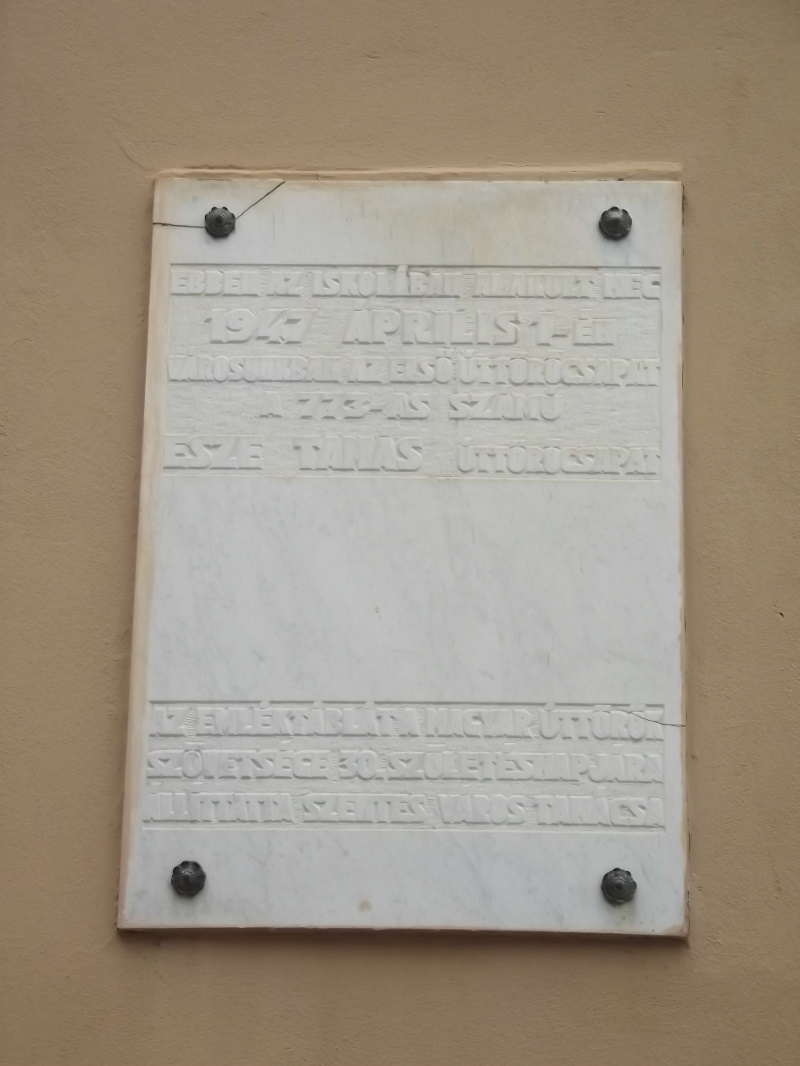 EBBEN AZ ISKOLÁBAN ALAKULT MEG
1947 ÁPRILIS 1-ÉN
VÁROSUNKBAN AZ ELSŐ ÚTTÖRŐCSAPAT
A 773-AS SZÁMÚ
ESZE TAMÁS ÚTTÖRŐCSAPAT
AZ EMLÉKTÁBLÁT A MAGYAR ÚTTÖRŐK
SZÖVETSÉGE 30. SZÜLETÉSNAPJÁRA
ÁLLÍTTATTA SZENTES VÁROS TANÁCSA